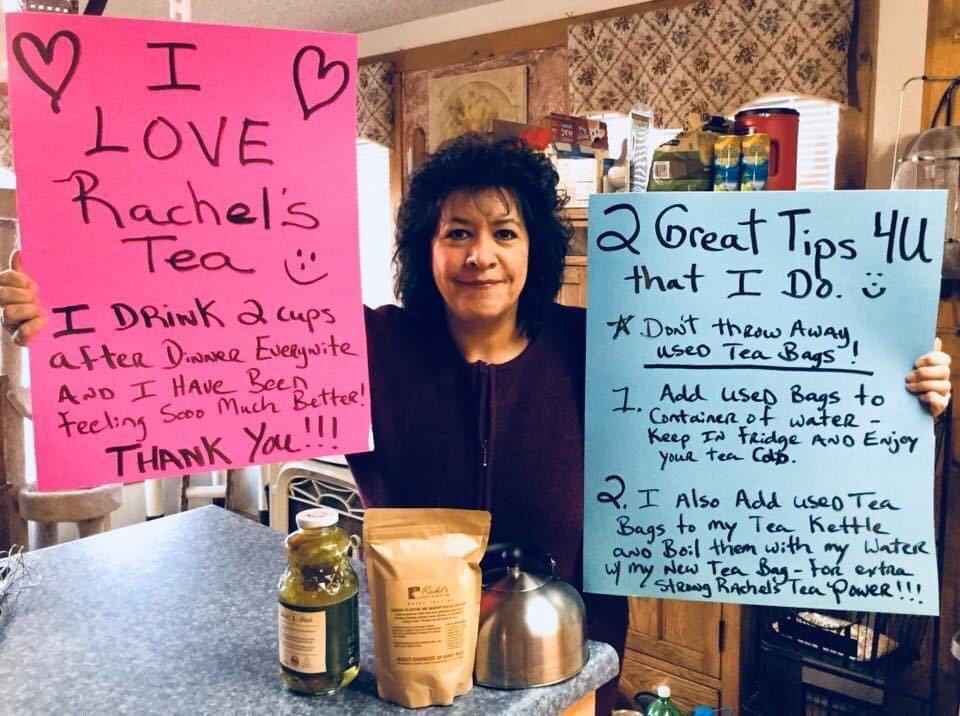 I
LOVE
Rachel's
Tea
I DRINK 2 cups
after DINNER Everynite
AND I HAVE BEEN
feeling Sooo Much Better!
THANK You!!!
2 Great Tips 4U
that I Do.
Don't throw Away
used Tea Bags!
1. Add used Bags to
Container of water -
Keep IN fridge AND Enjoy
your tea Cold.
2. I Also Add used Tea
Bags to my Tea Kettle
and Boil them with my water
w/ my New Tea Bag - for extra
Strong Rachel's Tea Power!!!
Rachel's